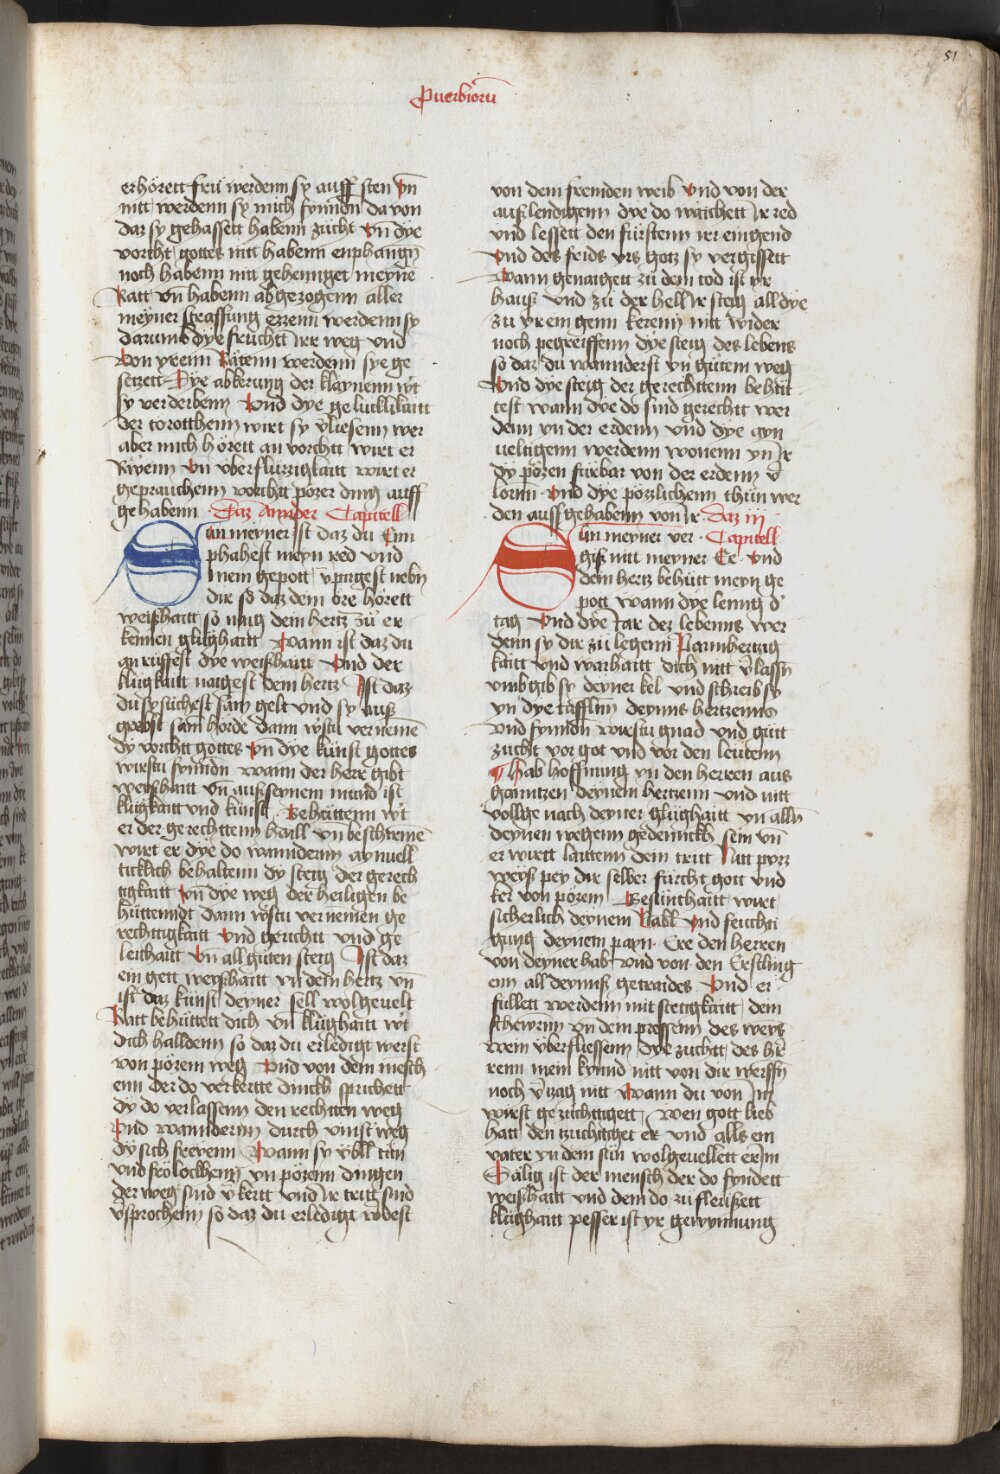 51
Puerbiorū
erhörett fru werdenn sy auff sten vn̄
nitt werdenn sy mich fynndn̄ da von
dar sy gehassett habenn zucht vn̄ dye
vorcht gottes nitt habenn enphangn̄
noch habenn nit gehennget meyne
Ratt vn̄ habenn abgezogenn aller
meyner straffung ezzenn werdenn sy
darumb dye fruchtt irr weg vnd
von yrenn Rätenn werdenn sye ge
setzett Dye abkerung der klaynenn wt̄
sy verderbenn Vnd dye gelücklikaitt
der torotthenn wirt sy v̄liesenn wer
aber mich hörett an vorchtt wirt er
Rwenn vn̄ vberflüzzigkaitt wirt er
geprauchenn vorchtt pözer ding auff
gehabenn Daz Annder Capitell
Sun meyner Ist daz du Em
phahest meyn red vnd
mein gepott v̄pirgest nebn̄
dir so daz dein ore hörett
weißhaitt so naig dein hertz zü er
kennen klughaitt Wann ist daz du
an rüffest dye weißhaitt Vnd der
klugkaitt naigest dein hertz Ist daz
du sy suchest sam gelt vnd sy auß
grebst sam horde dann wstu vernemē
dy vorchtt gottes vn̄ dye künst gottes
wirstu fynndn̄ wann der herr gibt
weyßhaitt vn̄ auß seynem mund ist
klugkaitt vnd künst Behüttenn wt̄
er der gerechttenn haill vn̄ beschirmē
wirt er dye do wanndernn aynuell
ticklich behaltenn dy steig der gerech
tigkaitt vn̄ dye weg der heiligen be
hüttenndt dann wstu vernemen ge
rechtigkaitt vnd gerichtt vnd ge
leichaitt vn̄ all güten steig Ist daz
ein gett weyßhaitt yn dein hertz vn̄
ist daz künst deyner sell wolgeuelt
Ratt behüttett dich vn̄ klüghaitt wt̄
dich halldenn so daz du erledigt werst
von pözem weg Vnd von dem mēsch
enn der do verkertte dinckh sprichett
dy do verlassenn den rechtten weg
Vnd wanndernn durch vinst weg
dy sich frewenn Wann sy v̈bll tün
vnd frölockhenn yn pözenn dingen
der weg sind v̄kertt vnd ir tritt sind
v̄sprochenn so daz du erledigt wdest
von dem fremden weib vnd von der
außlendigenn dye do waichett ir red
vnd lessett den fürstenn irr eingend
Vnd des frids yrs gotz sy vergissett
Wann genaigett zu dem tod ist yr
hauß vnd zu der hell ir steig all dye
zu yr ein genn kerenn nitt wider
noch pegreiffenn dye steig des lebens
so daz du wannderst yn gütem weg
Vnd dye steig der gerechttenn behüt
test wann dye do sind gerechtt wer
denn yn der erdenn vnd dye ayn
ueltigenn werdenn wonenn yn ir
dy pözen fürbar von der erdenn v̄
lornn vnd dye pözzlichenn thün wer
den auff gehabenn von ir Daz iij
Capitell
Sun meyner ver
giß nitt meyner Ee vnd
dein hertz behütt meyn ge
pott wann dye lenng d'
tag Vnd dye Iar dez lebenns wer
denn sy dir zü legenn Parmhertzig
kaitt vnd warhaitt dich nitt v̄lassn̄
vmb gib sy deyner kel vnd schreib sy
yn dye tafflnn deynns hertzenns
vnd fynndn̄ wirstu gnad vnd gütt
zucht vor got vnd vor den leütenn
Hab hoffnung yn den herren aus
ganntzen deynem hertzenn vnd nitt
vollge nach deyner glüghaitt yn alln̄
deynen wegenn gedennckh sein vn̄
er wirtt laittenn dein tritt Nitt pyzz
weyß pey dir selber fürcht gott vnd
ker von pözem Gesünthaitt wirt
sicherlich deynem Nabll vnd feuchti
gung deynem payn Ere den herren
von deyner hab vnd von den Erstling
enn all deynns getraides Vnd er
füllett werdenn mit stetigkaitt dein
schewrnn yn dem pressenn des weys
wein v̈berfliessenn dye zuchtt des hr̄
renn mein kynnd nitt von dir werffn̄
noch v̄zag nitt Wann du von im
wirst gezüchtigett wen gott lieb
hatt den tzuchttiget er vnd alls ein
vater yn dem sün wolgeuellett er im
Sälig ist der mensch der do fyndett
weißhaitt vnd dem do zu fleüßett
klüghaitt pesser ist yr gewynnung